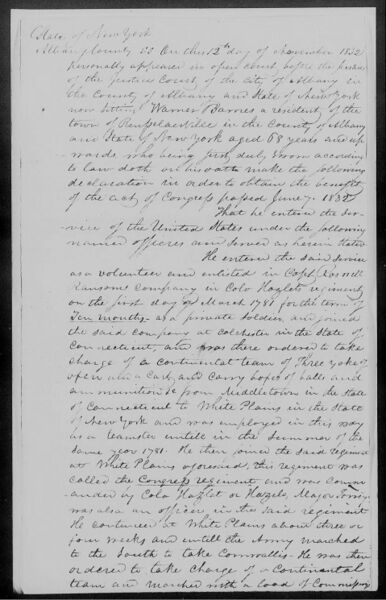 State of New York
Albany County SS On this 12th day of November 1832
personally appeared in open Court before the Justices
of the Justices Court, of the City of Albany in
the County of Albany and State of New York
now sitting Warner Barnes a resident, of the
town of Rensselaerville in the County of Albany
and State of New York aged 68 years and up
wards, who being first duly sworn according
to law doth on his oath make the following
declaration in order to obtain the benefit
of the act of Congress passed June 7. 1832.
That he entered the Ser-
vice of the United States under the following
named officers and served as herein stated
He entered the said Service
as a volunteer and enlisted in Capt
Ransoms Company in Colo Hazlets regiment,
on the first day of March 1781 for the term of
Ten months. as a private soldier and joined
the said company at Colchester in the State of
Connecticut, and was there ordered to take
charge of a continental team of three yoke of
oxen and a cart, and carry boxes of balls and
ammunition &c from Middletown in the State
of Connecticut to White Plains in the State
of New York and was employed in this way
as a teamster untill in the Summer of the
same year 1781. He then joined the said regiment
at White Plains aforesaid, this regiment was
called the Congress regiment and was comm
anded by Colo Hazlet or Hazels, Major
was also an officer in the said regiment
He continued at White Plains about three or
four weeks and untill the Army marched
to the South to take Cornwallis. He was then
ordered to take charge of a Continental
team and marched with a load of Commissary